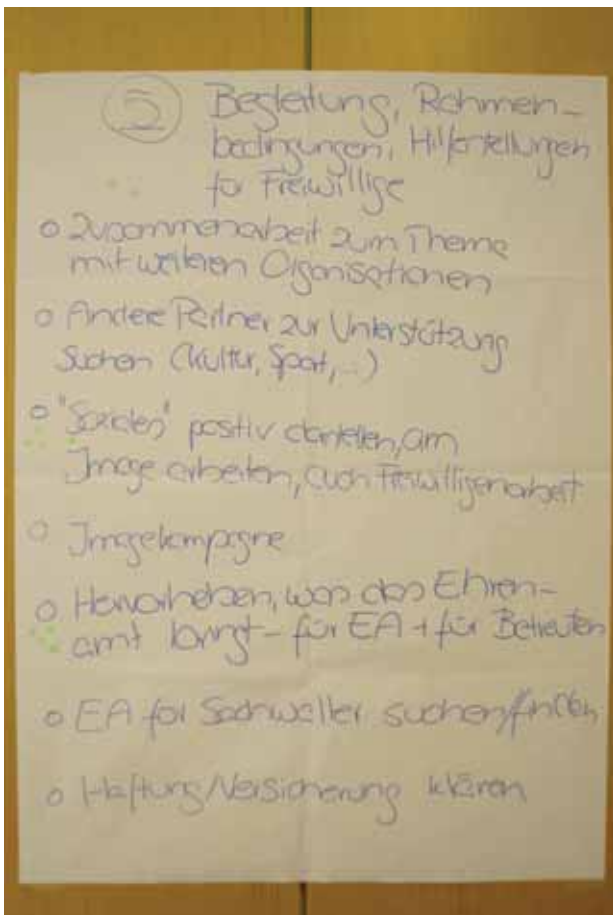 5 Begleitung, Rahmen-
bedingungen, Hilfestellungen
für Freiwillige
o Zusammenarbeit zum Thema
mit weiteren Organisationen
o Andere Partner zur Unterstützung
suchen (Kultur, Sport, ...)
o "Soziales" positiv darstellen, am
Image arbeiten, auch Freiwilligenarbeit
o Imagekampagne
o Hervorheben, was das Ehren-
amt bringt - für EA + für Betreuten
o EA für Sachwalter suchen/finden
o Haftung/Versicherung klären